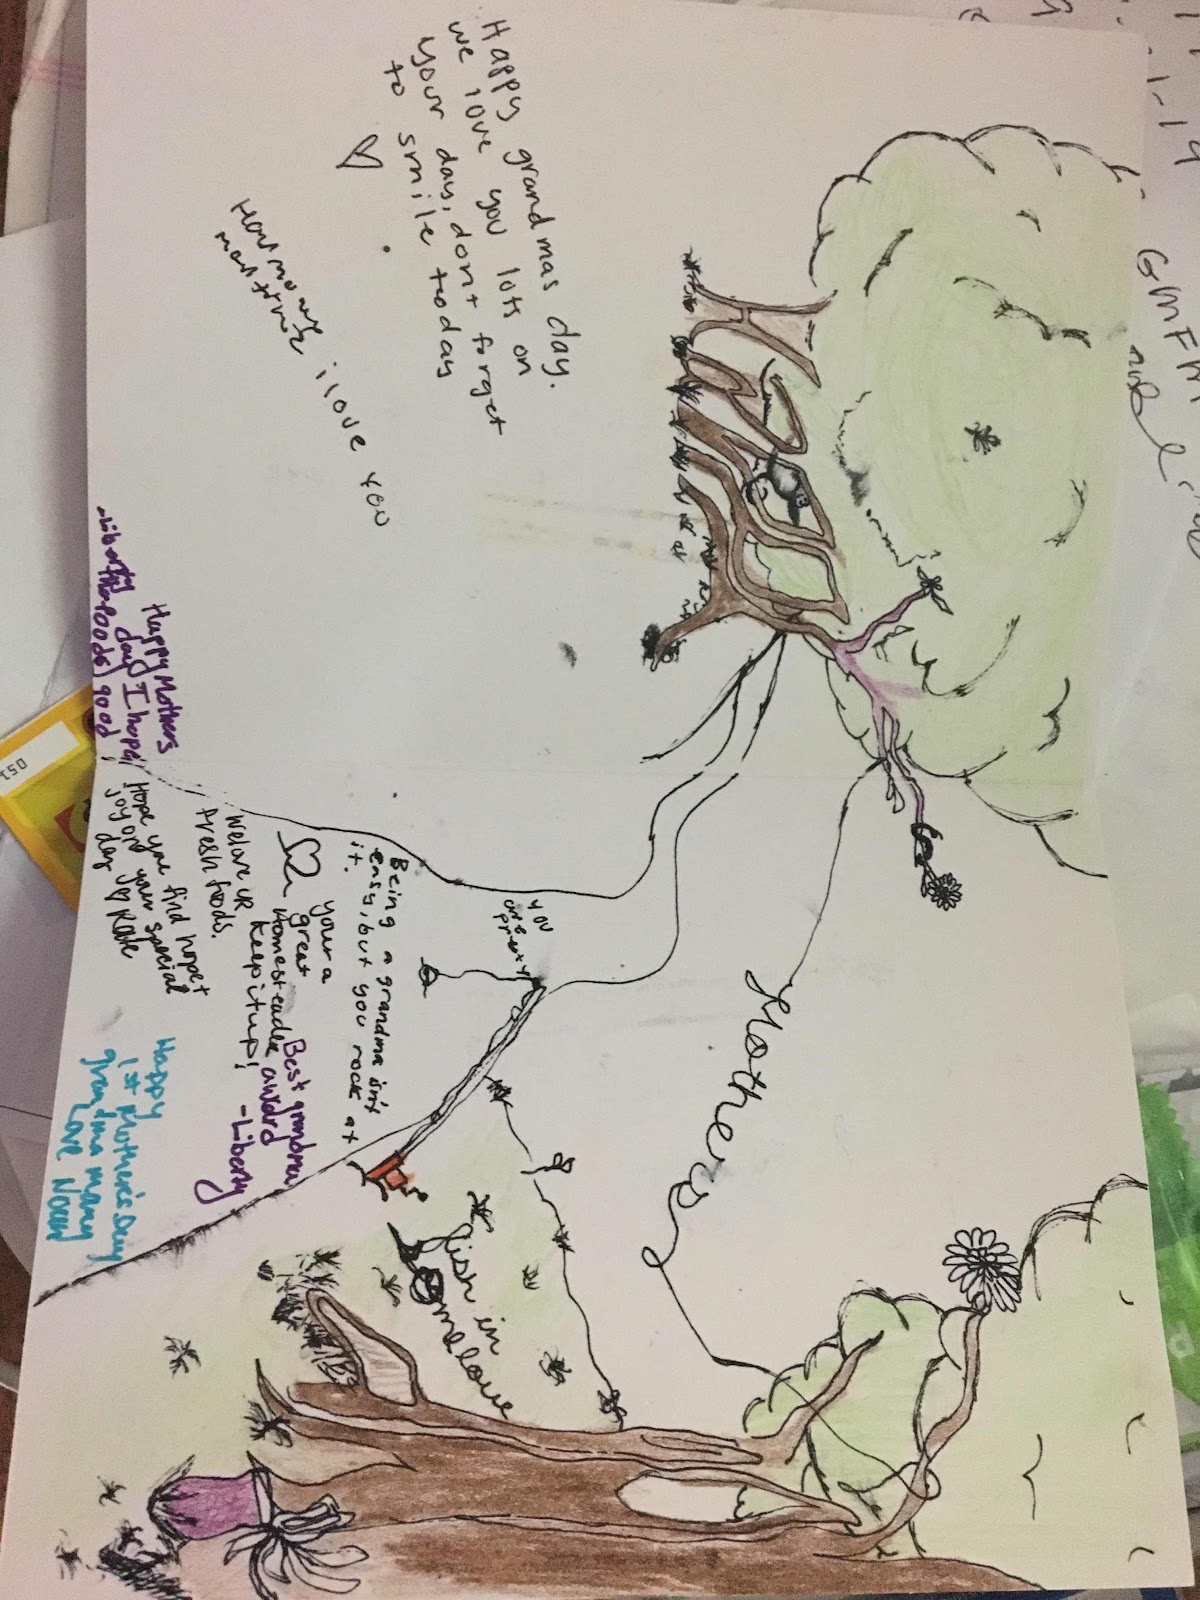 Happy
Mothers
Happy grandmas day.
we love you lots on
your day, don't forget
to smile today
i love you
Happy Mothers
day I hope
good!
-Liberty
you
are
pretty
Being a grandma isn't
easy, but you rock at
it.
your a
great
Homesteader
Keep it up!
fresh foods.
Best grandma
award
-Liberty
Hope you find hope +
joy on your special
day
Happy
1st Mother's Day
grandma mary
Love
fish in
love
GMFM
1-14
051